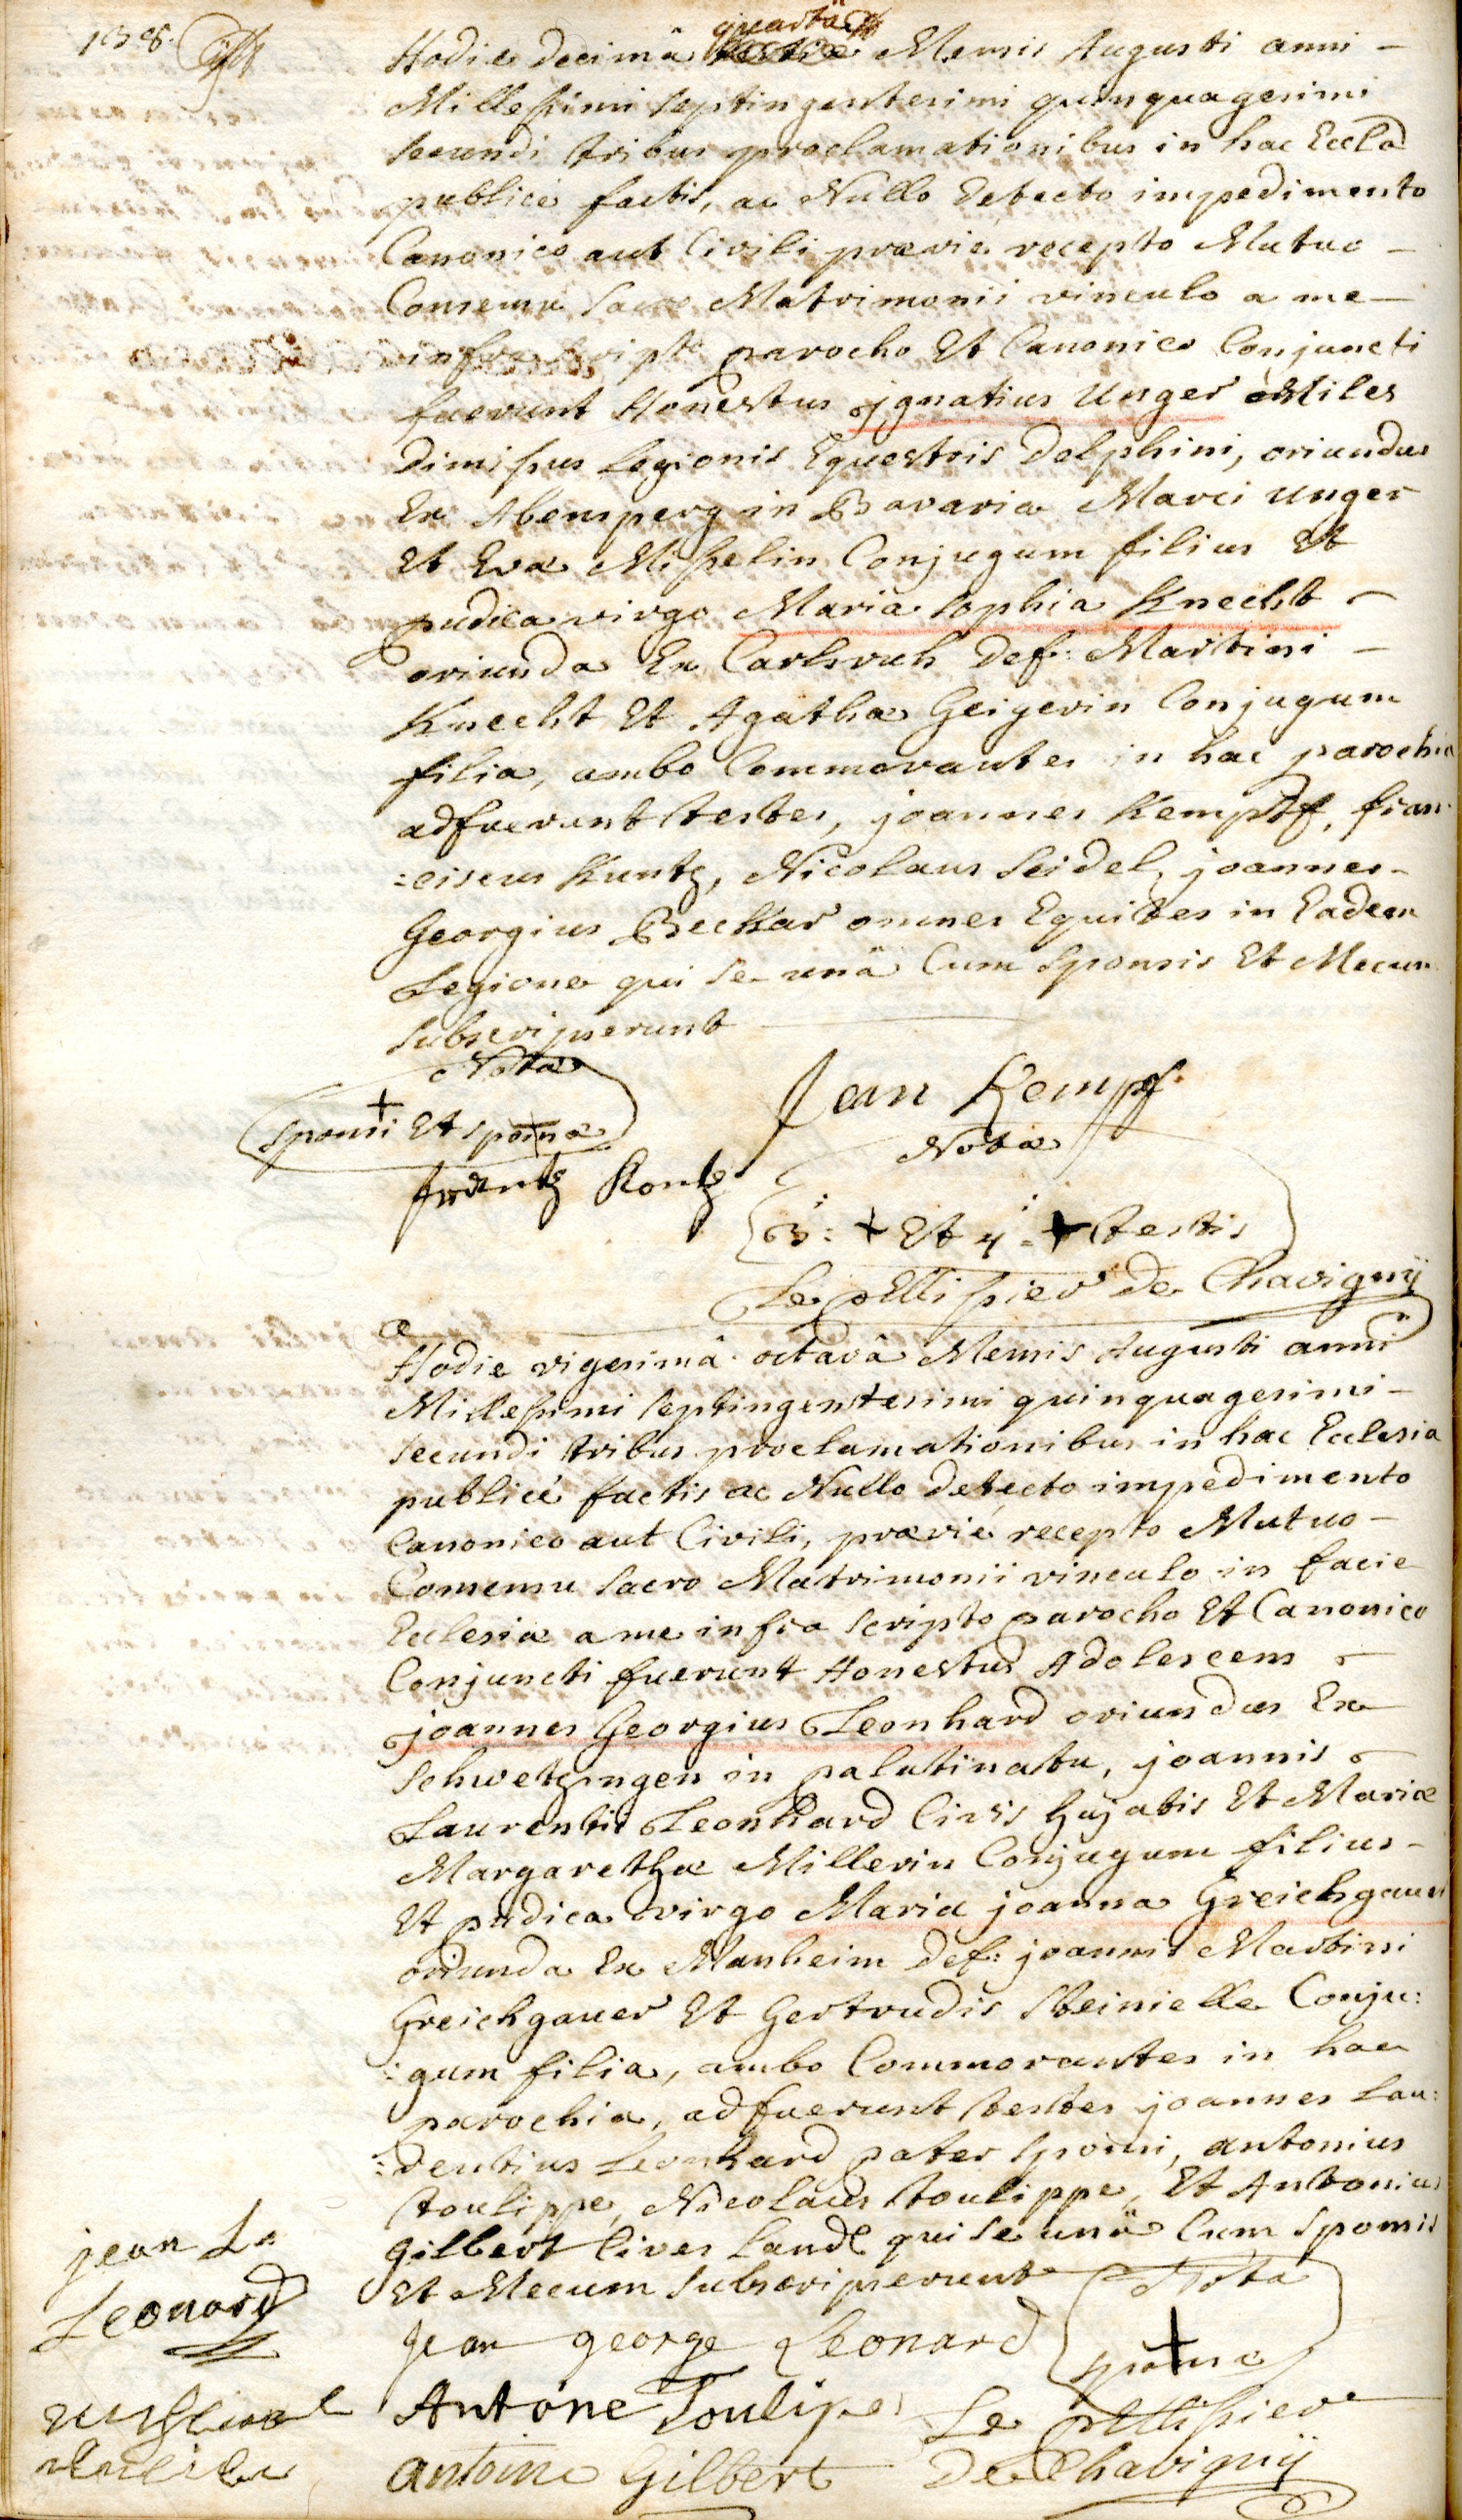 138.
quartâ
Hodie decimâ Mensis Augusti anni –
Millesimi septingentesimi quinquagesimi
secundi tribus proclamationibus in hac Eccla
publicè factis, ac Nullo detecto impedimento
Canonico aut Civili praeviè recepto Mutuo –
Consensu Sacro Matrimonii vinculo a me –
infra scripto parocho Et Canonico Conjuncti
fuerunt Honestus jgnatius Unger Miles
Dimissus Legionis Equestris Delphini, oriundus
Ex Abensperg in Bavaria Marci Unger
Et Eva Misselin Conjugum filius Et
pudica virgo Maria Sophia Knecht –
oriunda Ex Carlsruh Def: Martini –
Knecht Et Agatha Geigerin Conjugum
filia, ambo Commorantes in hac parochia
adfuerunt testes, joannes Kempff, fran
:ciscus Kuntz, Nicolaus Seidel, joannes –
Georgius Beckar omnes Equites in Eadem
Legione qui se unâ Cum Sponsis Et Mecum
Subscripserunt
Nota
Sponsi + Et sponsæ
Jean Kempf
Frantz Kontz
Nota
3: + Et 4: + testis
Le pellissier de Chavignÿ
Hodie vigesimâ octavâ Mensis Augusti anni
Millesimi septingentesimi quinquagesimi –
secundi tribus proclamationibus in hac Ecclesia
publicè factis ac Nullo detecto impedimento
Canonico aut Civili, praeviè recepto Mutuo –
Consensu Sacro Matrimonii vinculo in facie
Ecclesiæ a me infra scripto parocho Et Canonico
Conjuncti fuerunt Honestus Adolescens –
joannes Georgius Leonhard oriundus Ex
Schwetzingen in palatinatu, joannis –
Laurentii Leonhard Civis hujatis Et Mariæ
Margarethæ Millerin Conjugum filius –
Et pudica virgo Maria joanna Greichgauer
oriunda Ex Manheim Def: joannis Martini
Greichgauer Et Gertrudis Steinielle Conju:
:gum filia, ambo Commorantes in hac
parochia, adfuerunt testes joannes Lau:
:rentius Leonhard pater sponsi, antonius
toulippe, Nicolaus toulippe, Et Antonius
Gilbert Cives qui se unâ Cum Sponsis
Et Mecum Subscripserunt
Nota
+
sponsæ
jean La
Leonard
Jean george Leonard
Antone Toulipe
antoine Gilbert
Le pellissier
De Chavignÿ